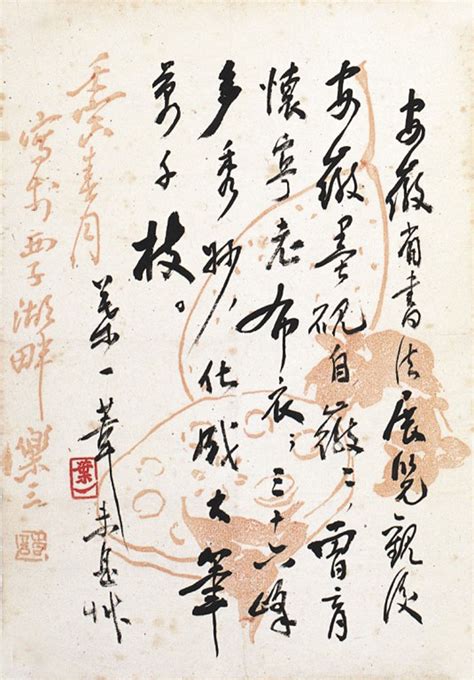 安徽省書法展覽觀後
安徽墨硯自,曾育
懷寧老布衣;三十六峰
多秀妙,化成大筆
萬千枝。
葉一葦未是艸
葉
壬戌春月
寫於西子湖畔 樂三